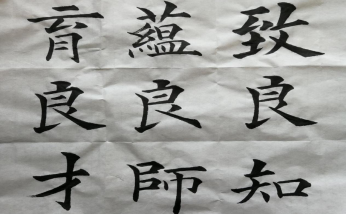 致良知
蘊良師
育良才